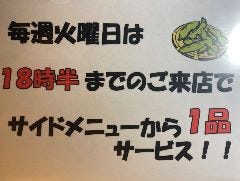 毎週火曜日は
18時半までのご来店で
サイドメニューから1品
サービス！！